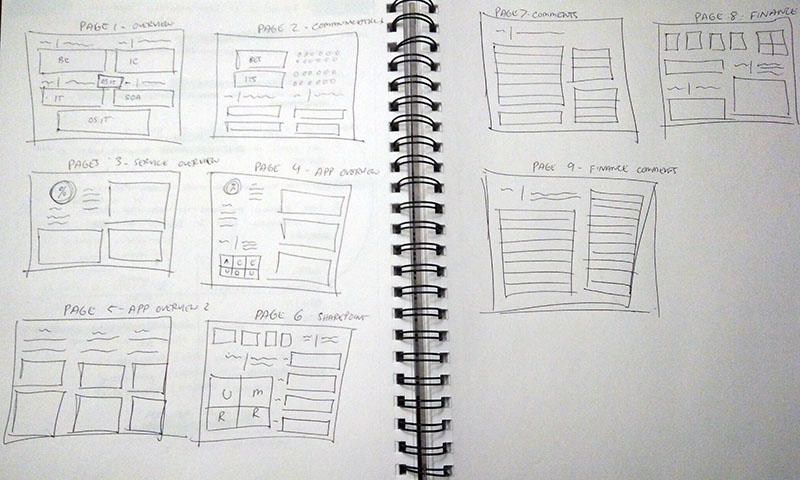 PAGE 1 - OVERVIEW
BC
IC
OSIT
IT
SOA
OSIT
PAGE 2 -
PAGE 3 - SERVICE OVERVIEW
%
PAGE 4 - APP OVERVIEW
PAGE 5 - APP OVERVIEW 2
PAGE 6 - SHAREPOINT
U M
R R
PAGE 7 - COMMENTS
PAGE 8 - FINANCE
PAGE 9 - FINANCE COMMENTS